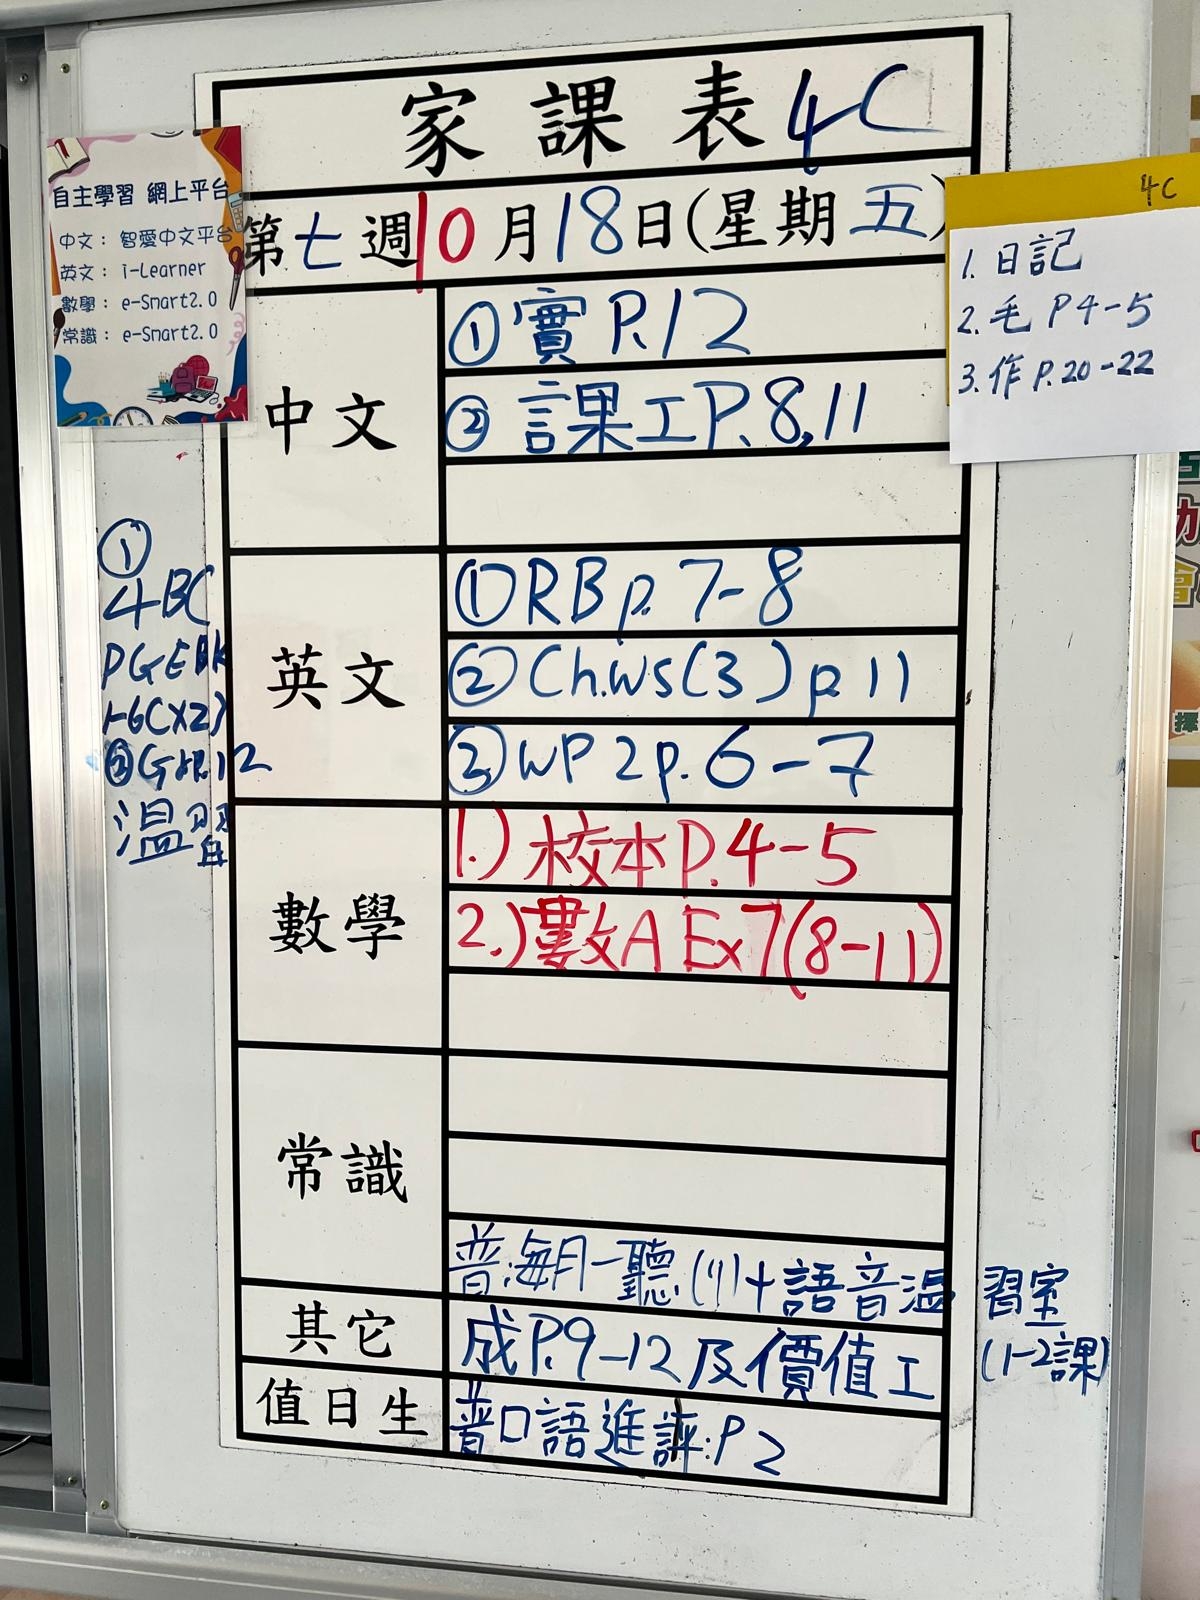 家課表 4C
第七週 10月18日(星期五)
自主學習 網上平台
中文: 智愛中文平台
英文: i-Learner
數學: e-Smart2.0
常識: e-Smart2.0
4C
1. 日記
2. 毛 P4-5
3. 作 P.20-22
中文
① 實 P.12
② 課工 P.8,11
英文
① RB p. 7-8
② Ch.ws(3) p 11
③ WP 2 p. 6-7
①
4BC
PGEBK
1-6(x2)
② Gr P.12
溫習
數學
1.) 校本 P.4-5
2.) 數A Ex 7(8-11)
常識
普:每月一聽.(1)+語音溫習室
(1-2課)
其它
成P.9-12及價值工
值日生
普口語進評:P2